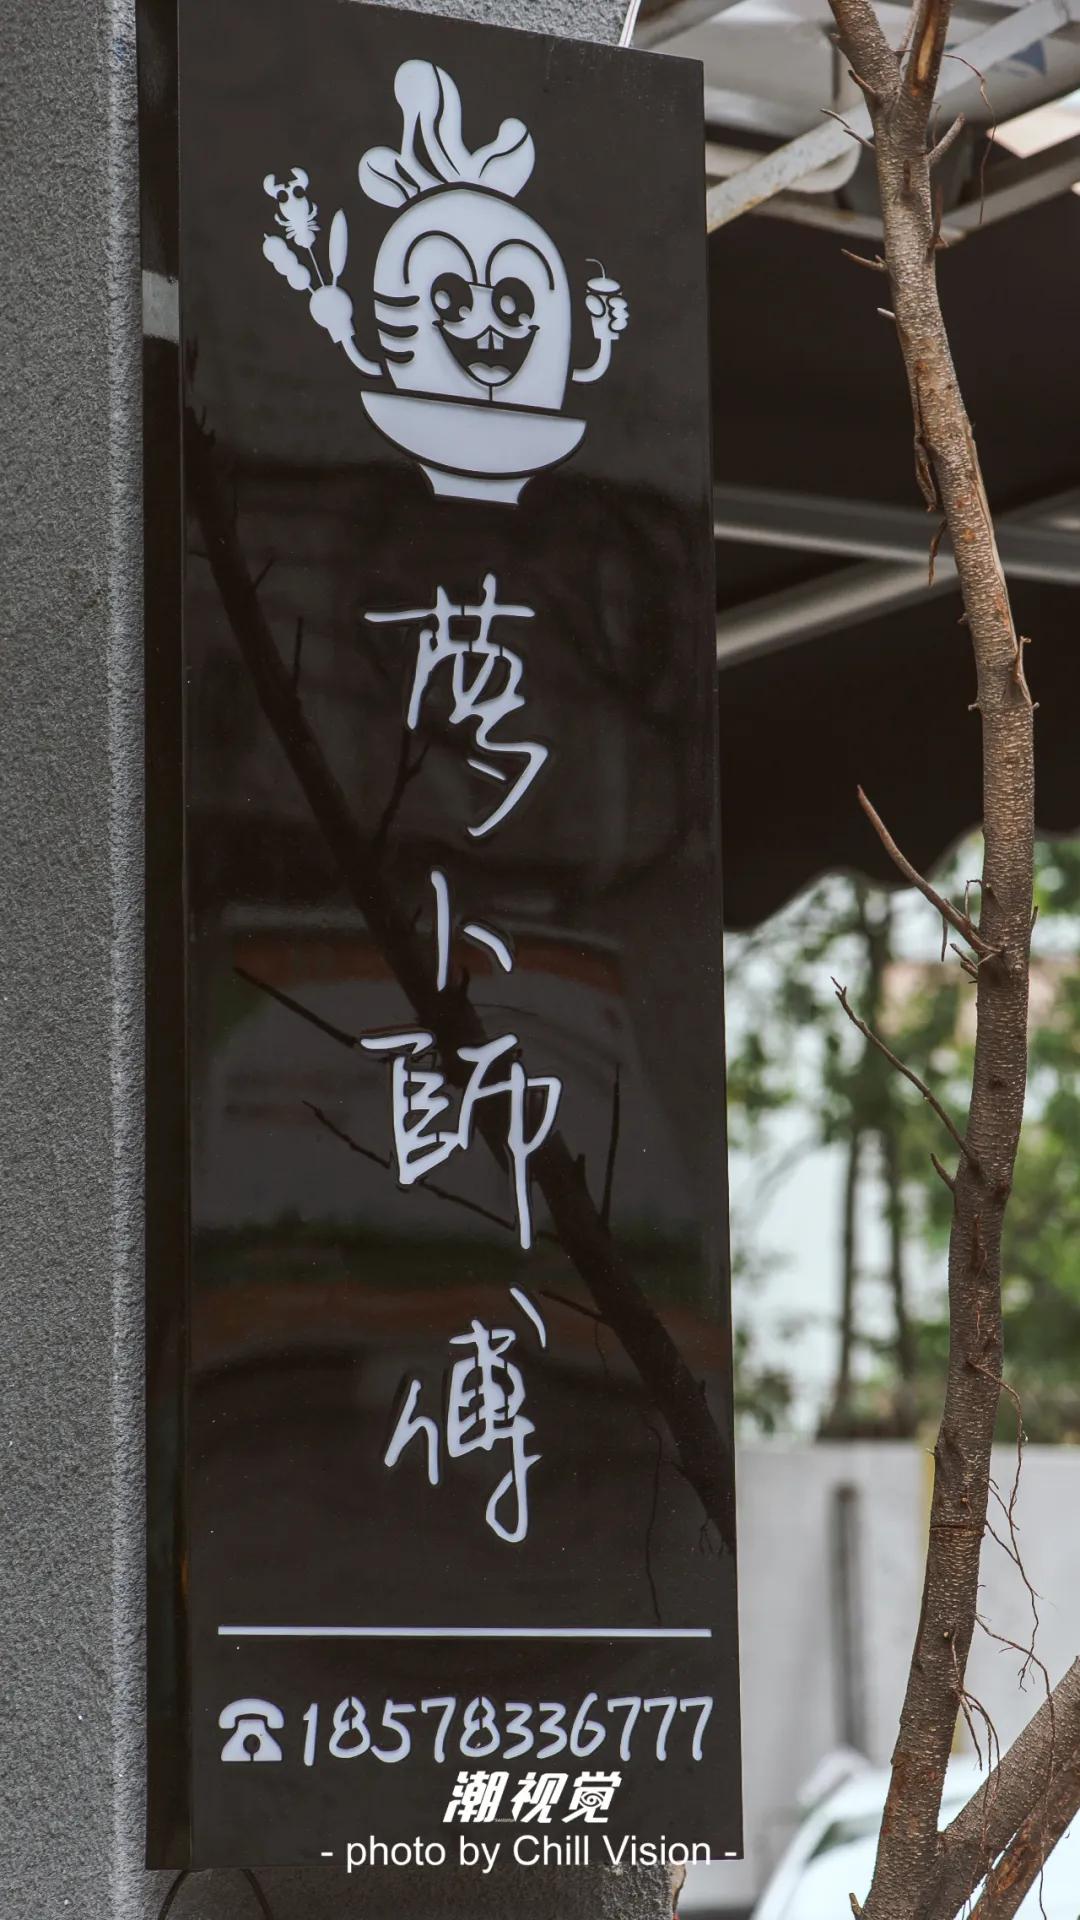 萝卜師傅
18578336777
潮视觉
- photo by Chill Vision -